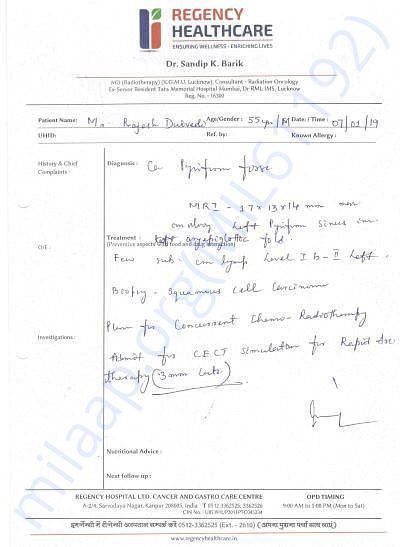 REGENCY
HEALTHCARE
ENSURING WELLNESS - ENRICHING LIVES
Dr. Sandip K. Barik
MD (Radiotherapy) (K.G.M.U, Lucknow), Consultant - Radiation Oncology
Ex-Senior Resident Tata Memorial Hospital Mumbai, Dr RML IMS, Lucknow
Reg. No. - 16300
Patient Name: Mr. Rajesh Dwivedi Age/Gender: 55 yrs/M Date / Time: 07/01/19
UHID: Ref. by: Known Allergy:
History & Chief Complaints: Diagnosis: Ca Pyriform fossa
MRI - 17x13x14 mm mass
involving left Pyriform Sinus
Treatment: left aryepiglottic fold.
(Preventive aspects with food and drug interaction)
O/E: Few sub cm lymph Level IB-II left.
Biopsy - Squamous cell Carcinoma
Plan for Concurrent Chemo-Radiotherapy
Investigations: Admit for CECT Simulation for Rapid Arc
therapy (3mm cuts)
Nutritional Advice:
Next follow up:
REGENCY HOSPITAL LTD. CANCER AND GASTRO CARE CENTRE OPD TIMING
A-2/4, Sarvodaya Nagar, Kanpur 208005, India T 0512-3362525, 3362526 9:00 AM to 5:00 PM (Mon to Sat)
इमरजेन्सी में रीजेन्सी अस्पताल सम्पर्क करें 0512-3362525 (Ext. - 2610) (अपना पुराना पर्चा साथ लाएं)
www.regencyhealthcare.in